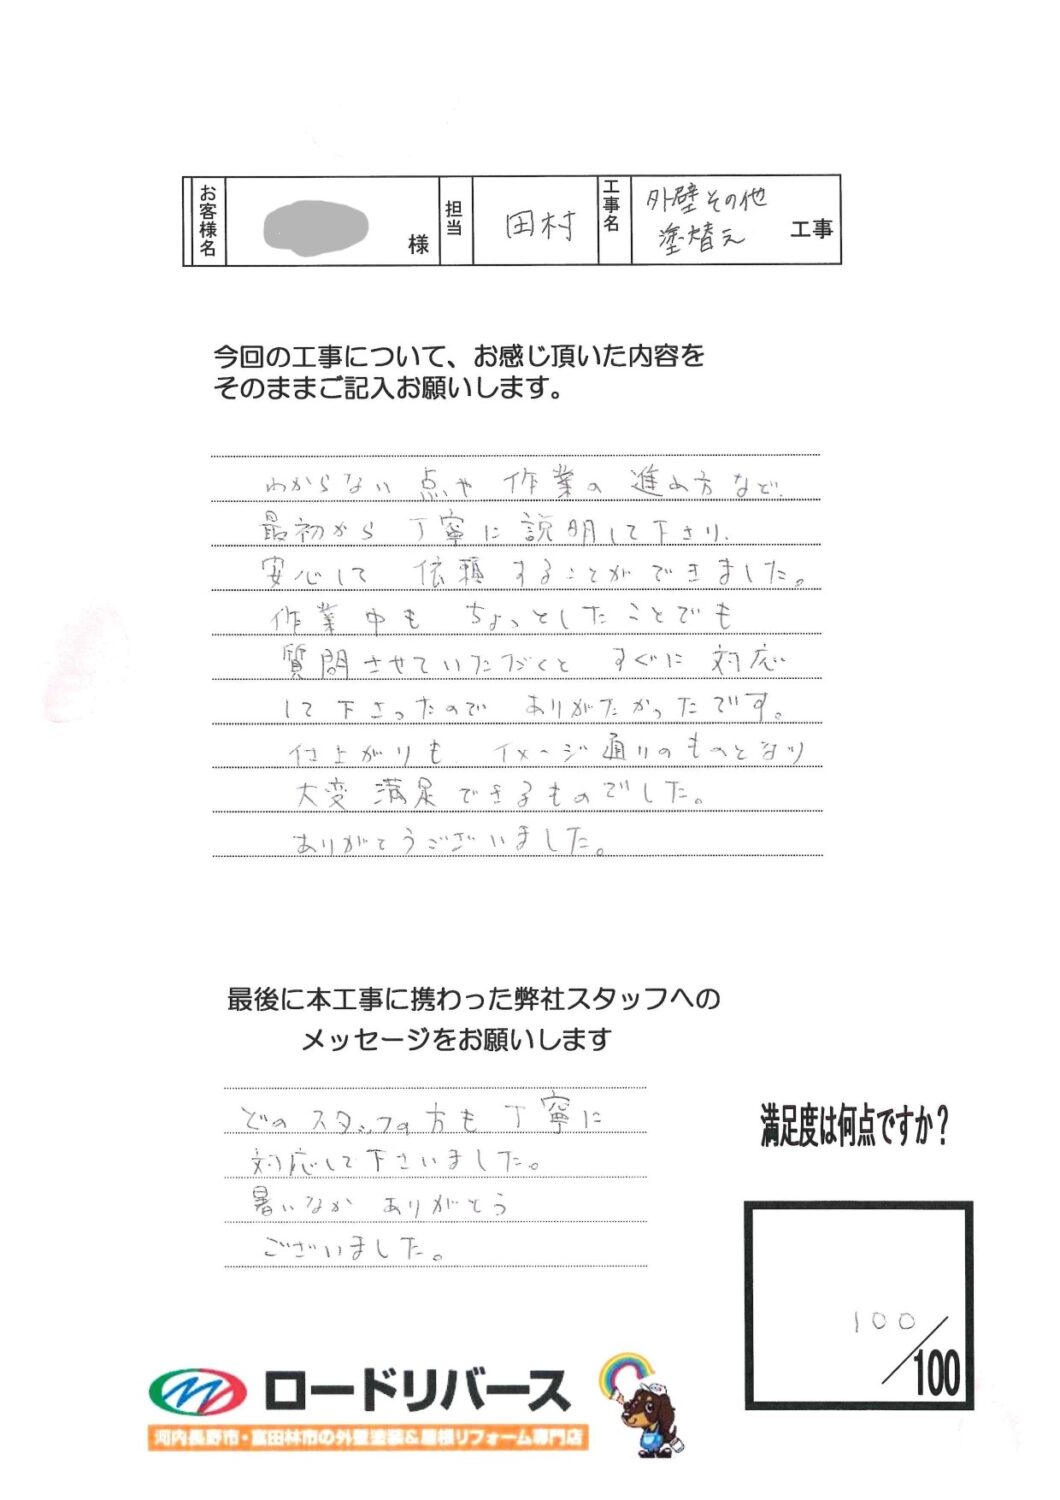 お客様名
様
担当
田村
工事名
外壁その他
塗替え
工事
今回の工事について、お感じ頂いた内容を
そのままご記入お願いします。
わからない点や作業の進め方など、
最初から丁寧に説明して下さり、
安心して依頼することができました。
作業中もちょっとしたことでも
質問させていただくとすぐに対応
して下さったのでありがたかったです。
仕上がりもイメージ通りのものとなり
大変満足できるものでした。
ありがとうございました。
最後に本工事に携わった弊社スタッフへの
メッセージをお願いします
どのスタッフの方も丁寧に
対応して下さいました。
暑いなかありがとう
ございました。
満足度は何点ですか？
100/100
ロードリバース
河内長野市・富田林市の外壁塗装&屋根リフォーム専門店